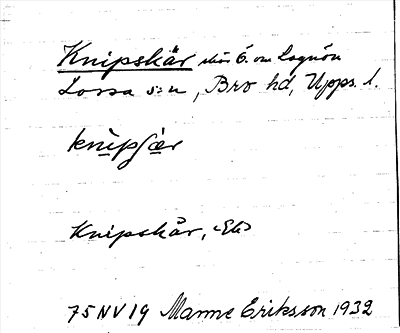 Knipskär skär Ö. om Lagnön
Lossa s:n, Bro hd, Upps. l.
knipʃær
Knipskär, <Ek>
75NV19 Manne Eriksson 1932